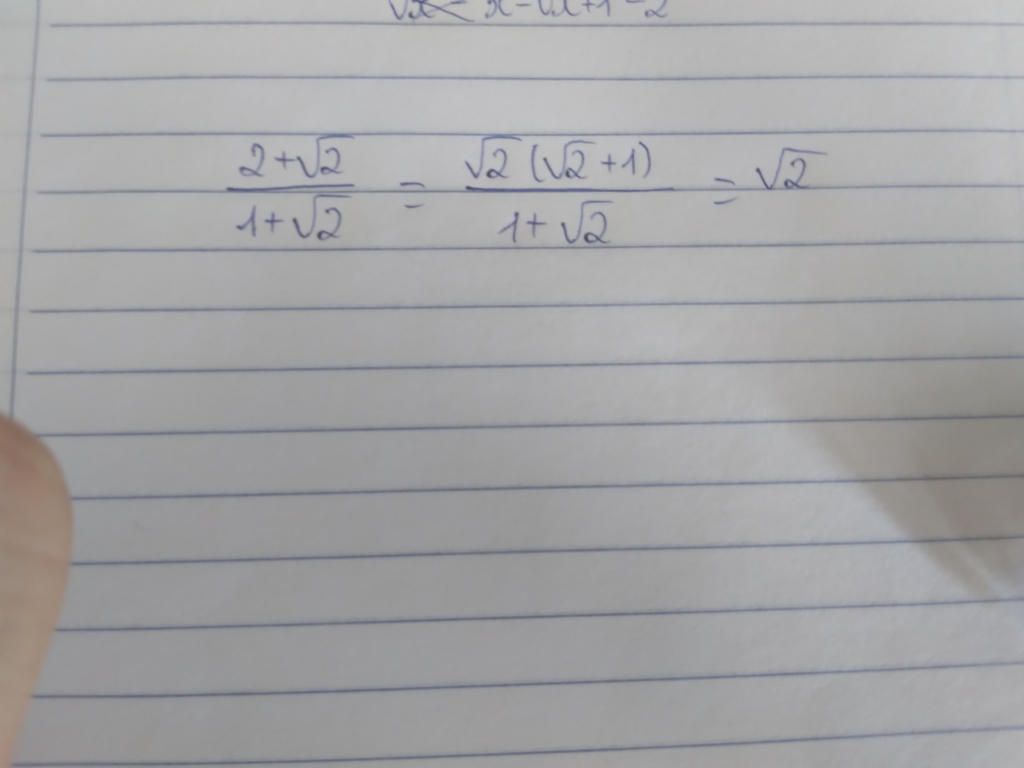 (2+√2)/(1+√2) = (√2(√2+1))/(1+√2) = √2